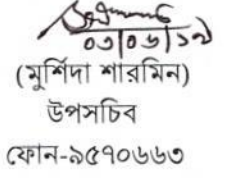 ০৩|০৬|১৯
(মুর্শিদা শারমিন)
উপসচিব
ফোন-৯৫৭০৬৬৩